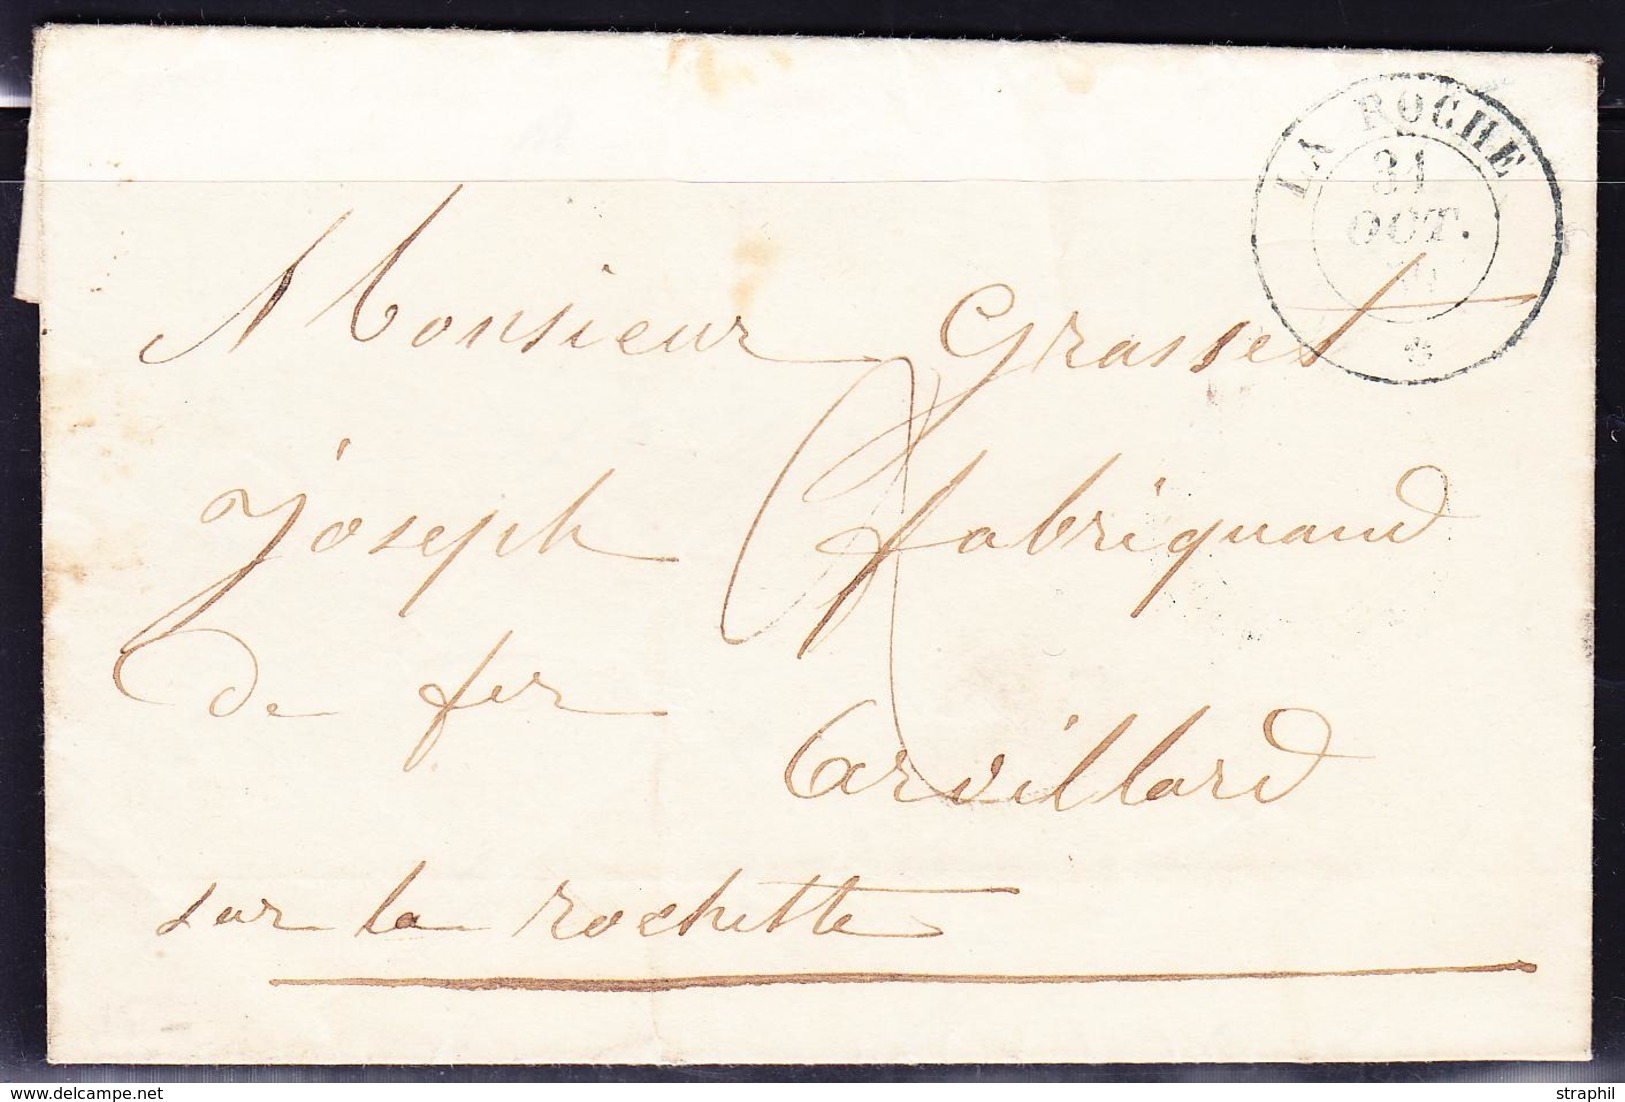 LA ROCHE
31
OCT.
Monsieur Grasset
joseph fabriquand
De fer Arvillard
sur la rochette
delcampe.net
straphil